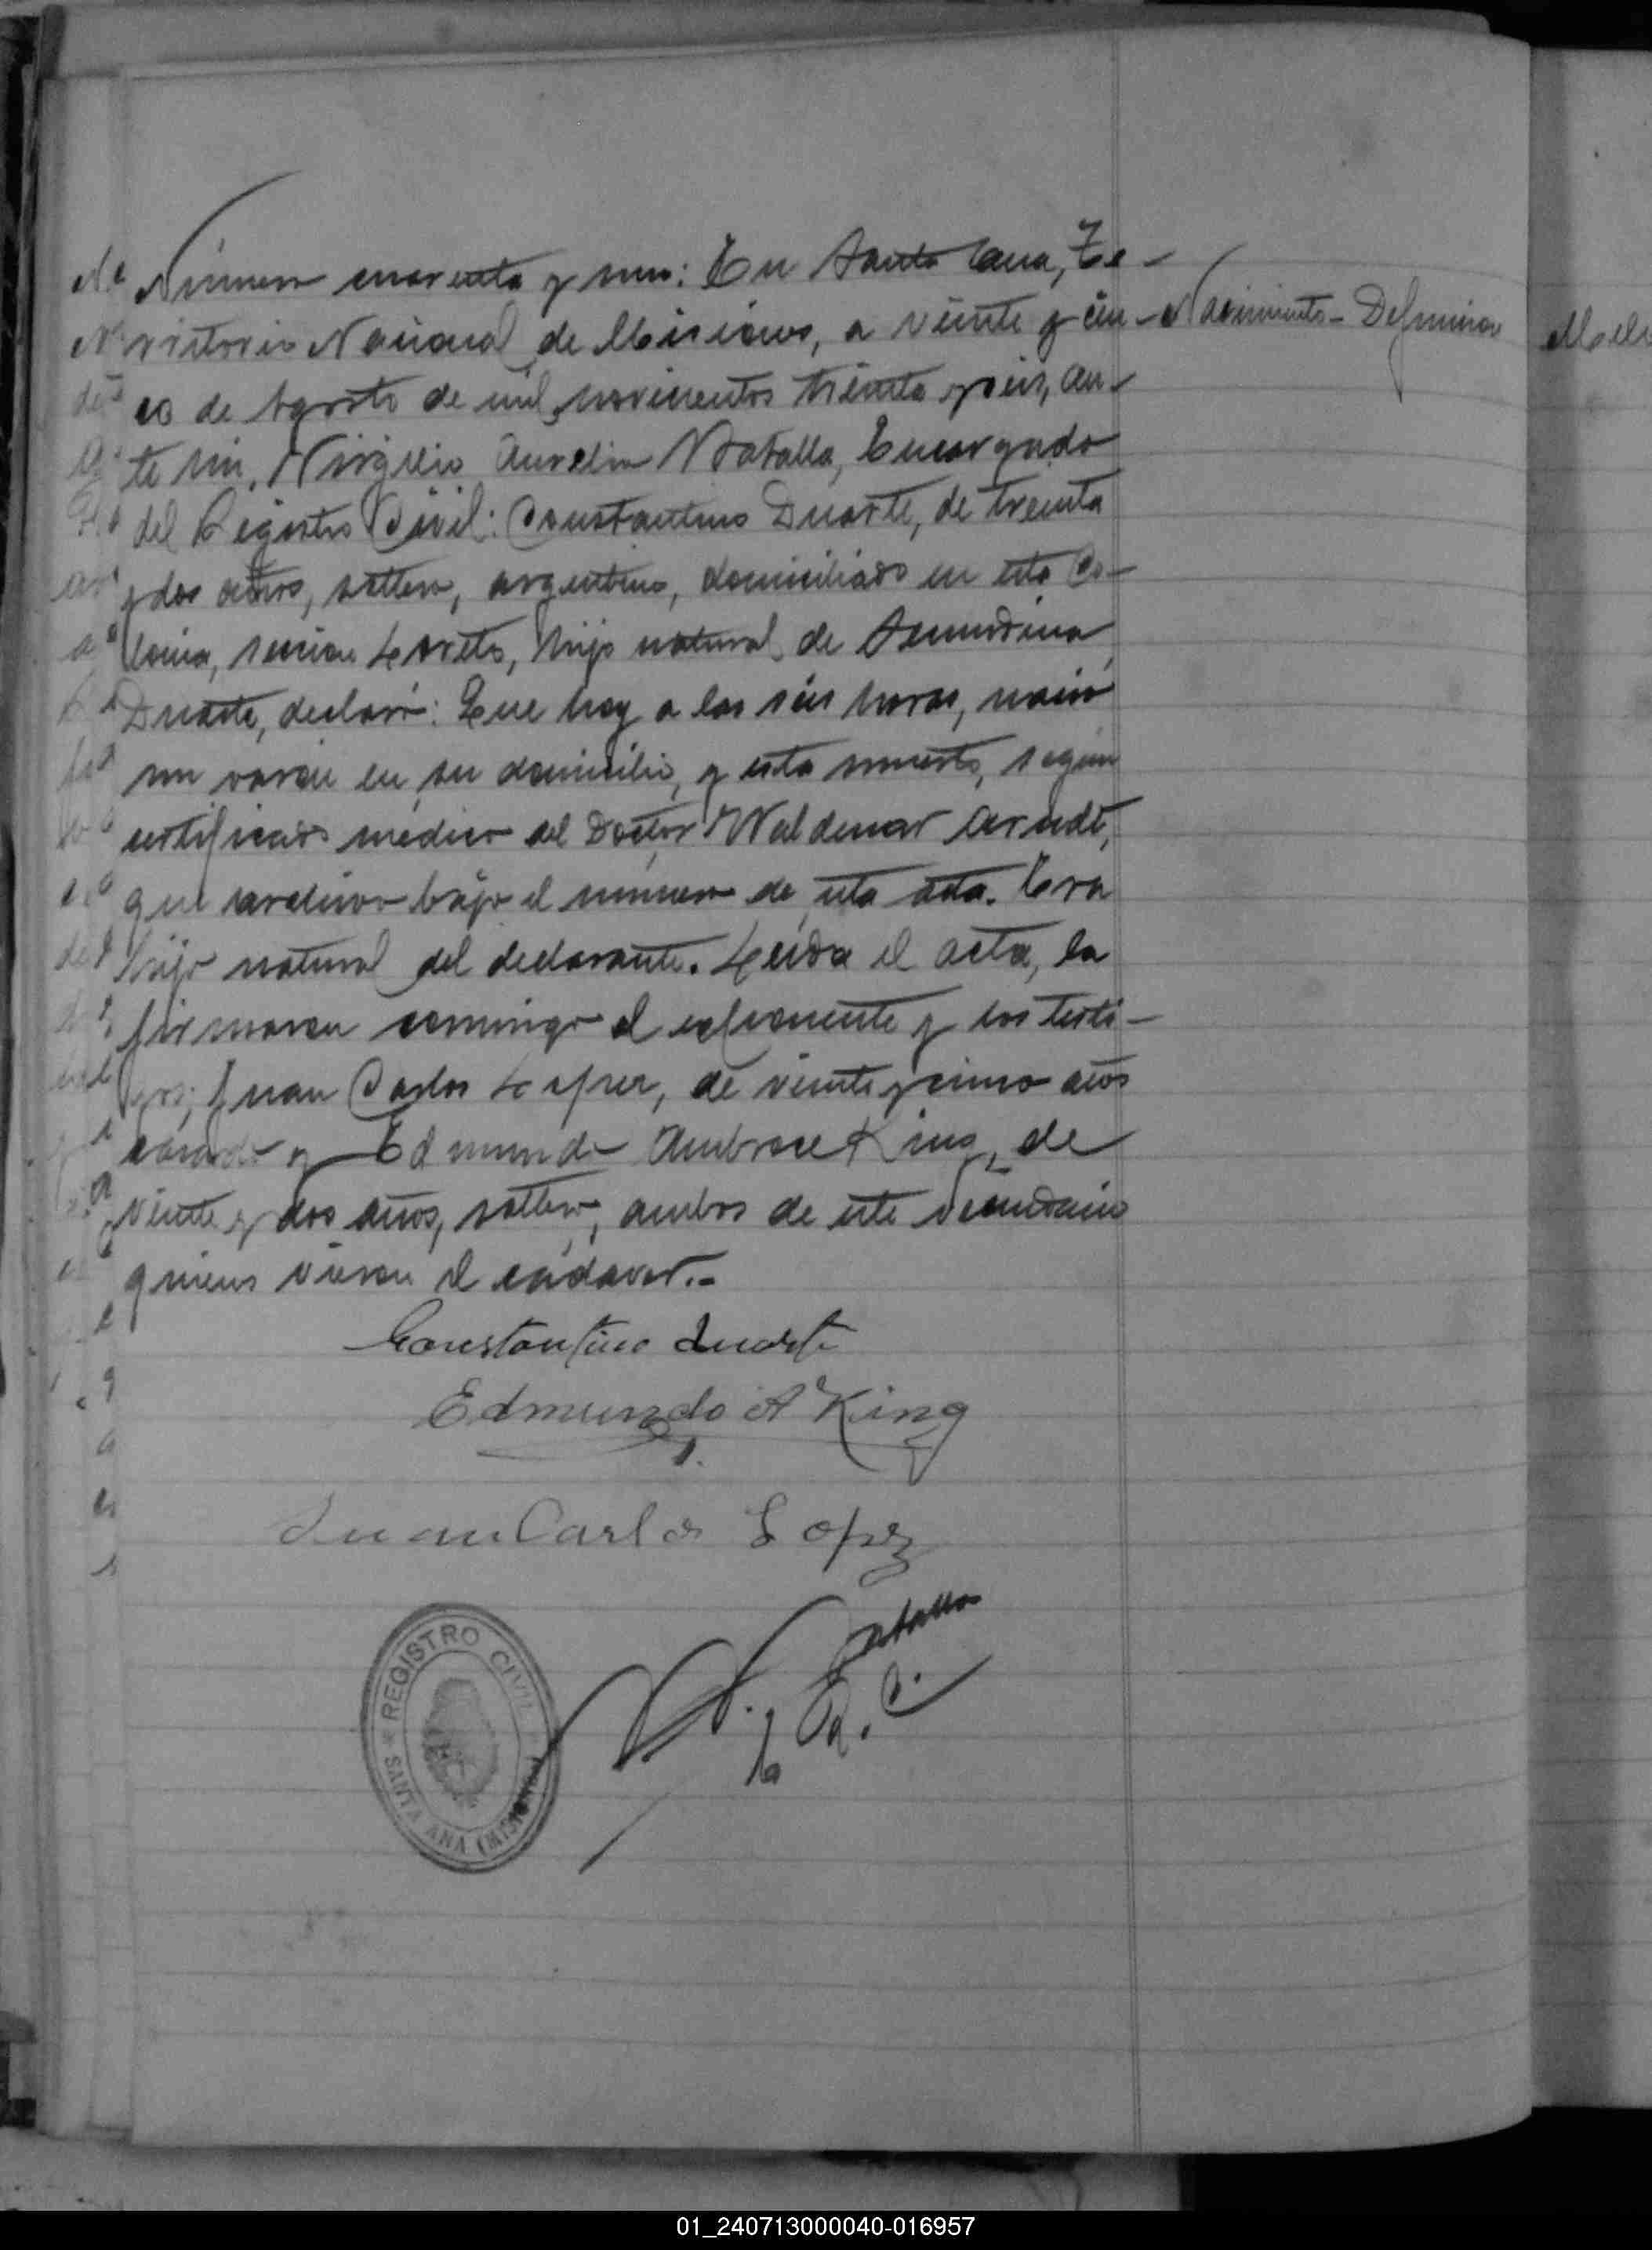 Número cuarenta y uno: En Santa Ana, Te-
rritorio Nacional de Misiones, a veinte y cin-
Nacimiento - Defuncion
co de Agosto de mil novecientos treinta y seis, an-
te mi, Virgilio Aurelio Batalla, Encargado
del Registro Civil: Constantino Duarte, de treinta
y dos años, soltero, argentino, domiciliado en esta Co-
lonia, seccion Loreto, hijo natural de
Duarte, declaró: Que hoy a las seis horas, nació
un varon en su domicilio, y esta muerto, según
certificado médico del Doctor Waldemar Arndt,
que archivo bajo el numero de esta acta. Era
hijo natural del declarante. Leída el acta, la
firmaron conmigo el exponente y los testi-
gos; Juan Carlos Lopez, de veinte y cinco años
casado y Edmundo Ambrose King, de
veinte y dos años, soltero, ambos de este vecindario
quienes vieron el cadaver.-
Constantino Duarte
Edmundo A King
Juan Carlos Lopez
V. A. Batalla
E. R. C.
REGISTRO CIVIL
SANTA ANA (MISIONES)
01_240713000040-016957